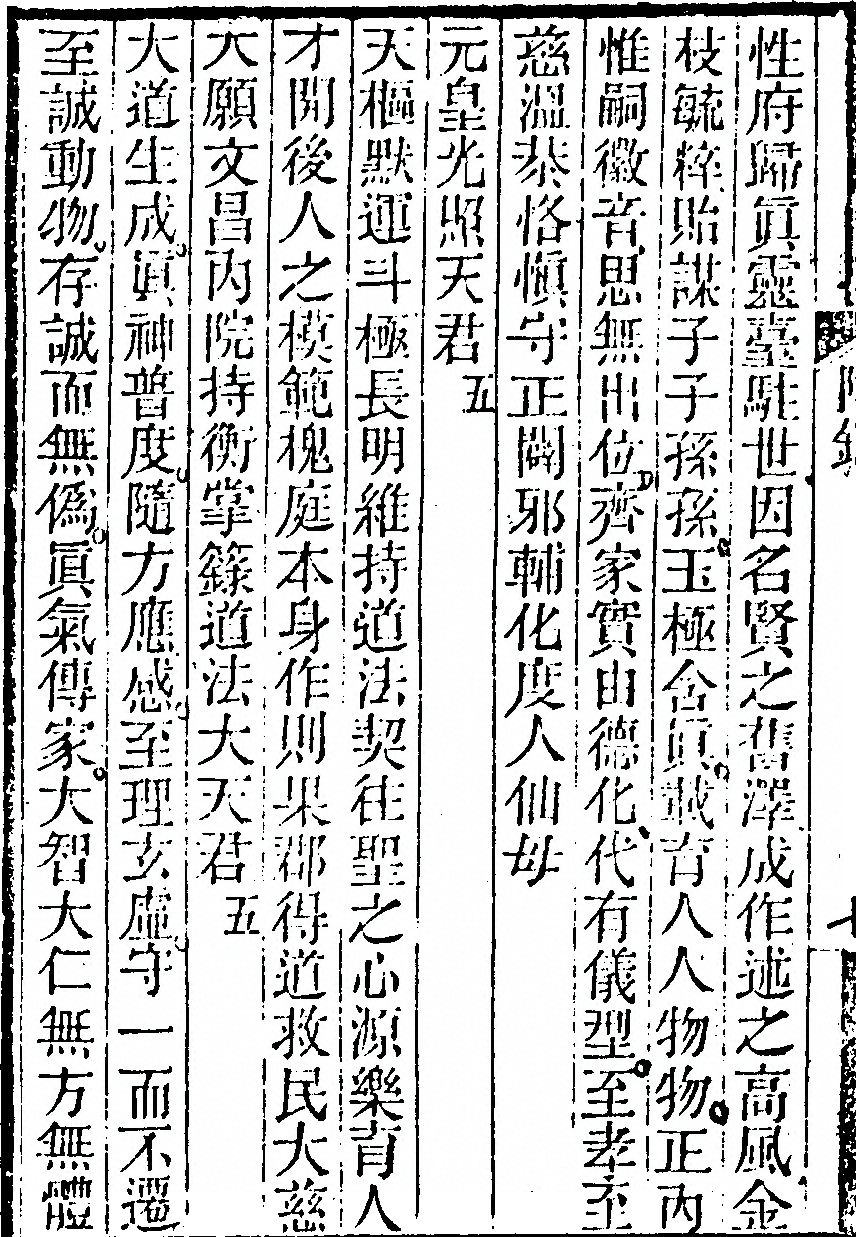 性府歸眞靈臺駐世因名賢之舊澤成作述之高風金
枝毓粹貽謀子子孫孫玉極含眞載育人人物物正內
惟嗣徽音思無出位齊家實由德化代有儀型至孝至
慈溫恭恪愼守正闢邪輔化度人仙母
元皇光照天君五
天樞默運斗極長明維持道法契往聖之心源樂育人
才開後人之模範槐庭本身作則果郡得道救民大慈
大願文昌內院持衡掌籙道法大天君五
大道生成眞神普度隨方應感至理玄虛守一而不遷
至誠動物存誠而無僞眞氣傳家大智大仁無方無體